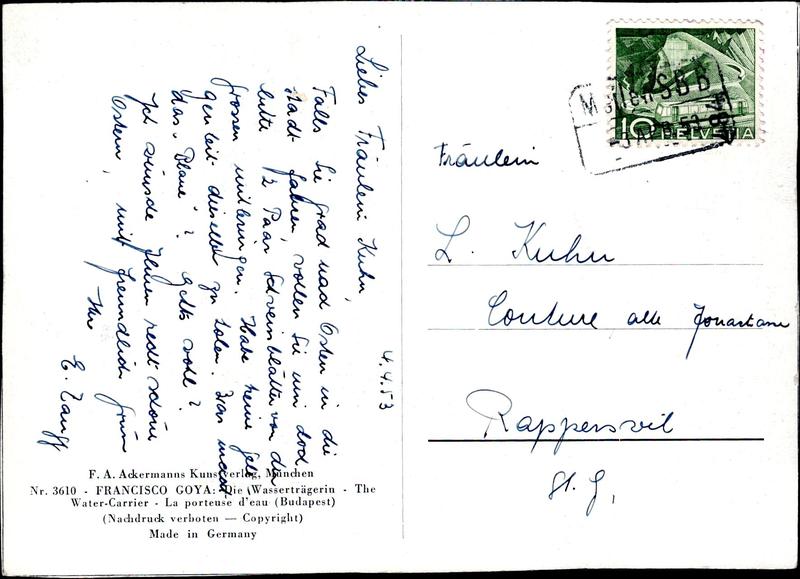 Liebes Fräulein Kuhn,
Falls Sie grad nach Ostern in die
Stadt fahren, wollen Sie mir doch
bitte 1/2 Paar Schweissblätter von den
grossen mitbringen. Habe keine Gele-
genheit dieselben zu holen. Was macht
das "Blaue"? Gehts wohl?
Ich wünsche Ihnen recht schöne
Ostern, mit freundlich Grüssen
Ihre
4.4.53
F. A. Ackermanns Kunstverlag, München
Nr. 3610 - FRANCISCO GOYA: Die Wasserträgerin - The
Water-Carrier - La porteuse d'eau (Budapest)
(Nachdruck verboten — Copyright)
Made in Germany
10 HELVETIA
SBB
Fräulein
L. Kuhn
Couture alte
Rapperswil
St. G.